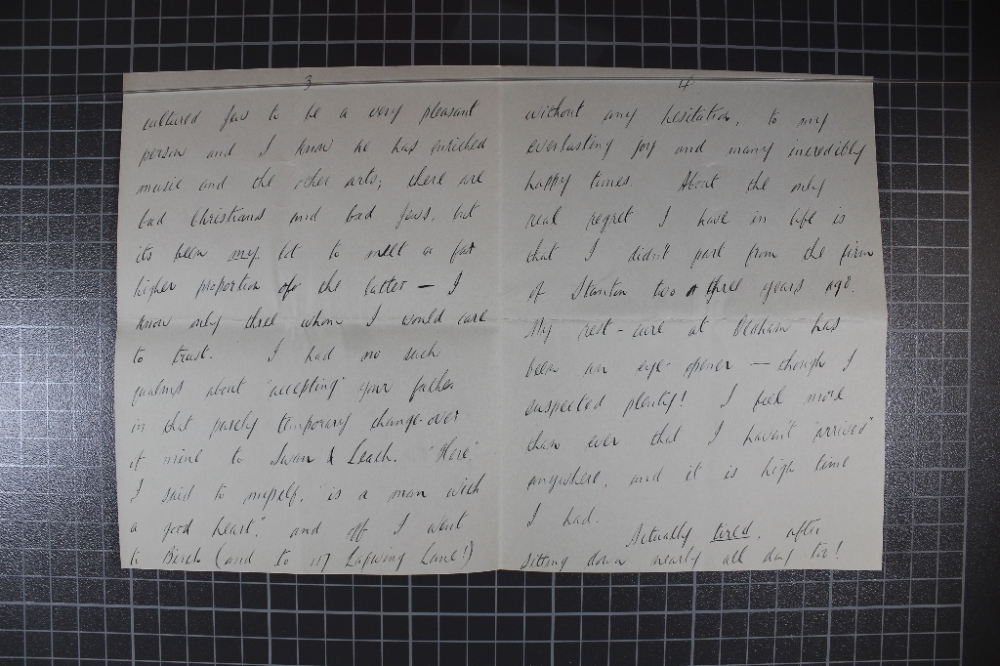 3
cultured Jew to be a very pleasant
person and I know he has enriched
music and the other arts; there are
bad Christians and bad Jews, but
its been my lot to meet a far
higher proportion of the latter — I
know only three whom I would care
to trust. I had no such
qualms about "accepting" your father
in that purely temporary change-over
of mine to Swan & Leach. "Here"
I said to myself, "is a man with
a good heart", and off I went
to Birch (and to 117 Lapwing Lane!)
4
without any hesitation, to my
everlasting joy and many incredibly
happy times. About the only
real regret I have in life is
that I didn't part from the firm
of Stanton two or three years ago.
My rest-cure at Oldham has
been an eye-opener — though I
suspected plenty! I feel more
than ever that I haven't "arrived"
anywhere, and it is high time
I had.
Actually tired, after
sitting down nearly all day too!